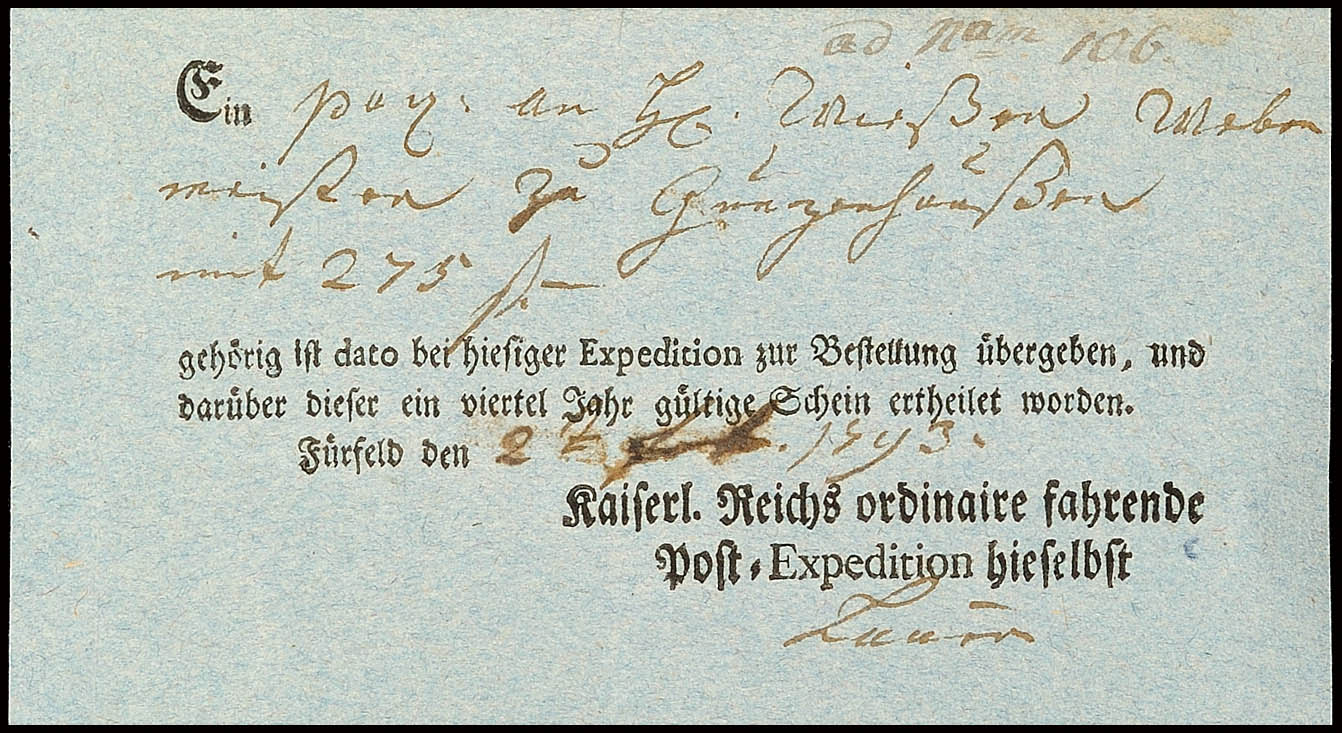 ad Num 106.
Ein paq. an H. Wießen Weber
meister zu Gunzenhaußen
mit 275 f.
gehörig ist dato bei hiesiger Expedition zur Bestellung übergeben, und
darüber dieser ein viertel Jahr gültige Schein ertheilet worden.
Fürfeld den 2 1793.
Kaiserl. Reichs ordinaire fahrende
Post-Expedition hieselbst